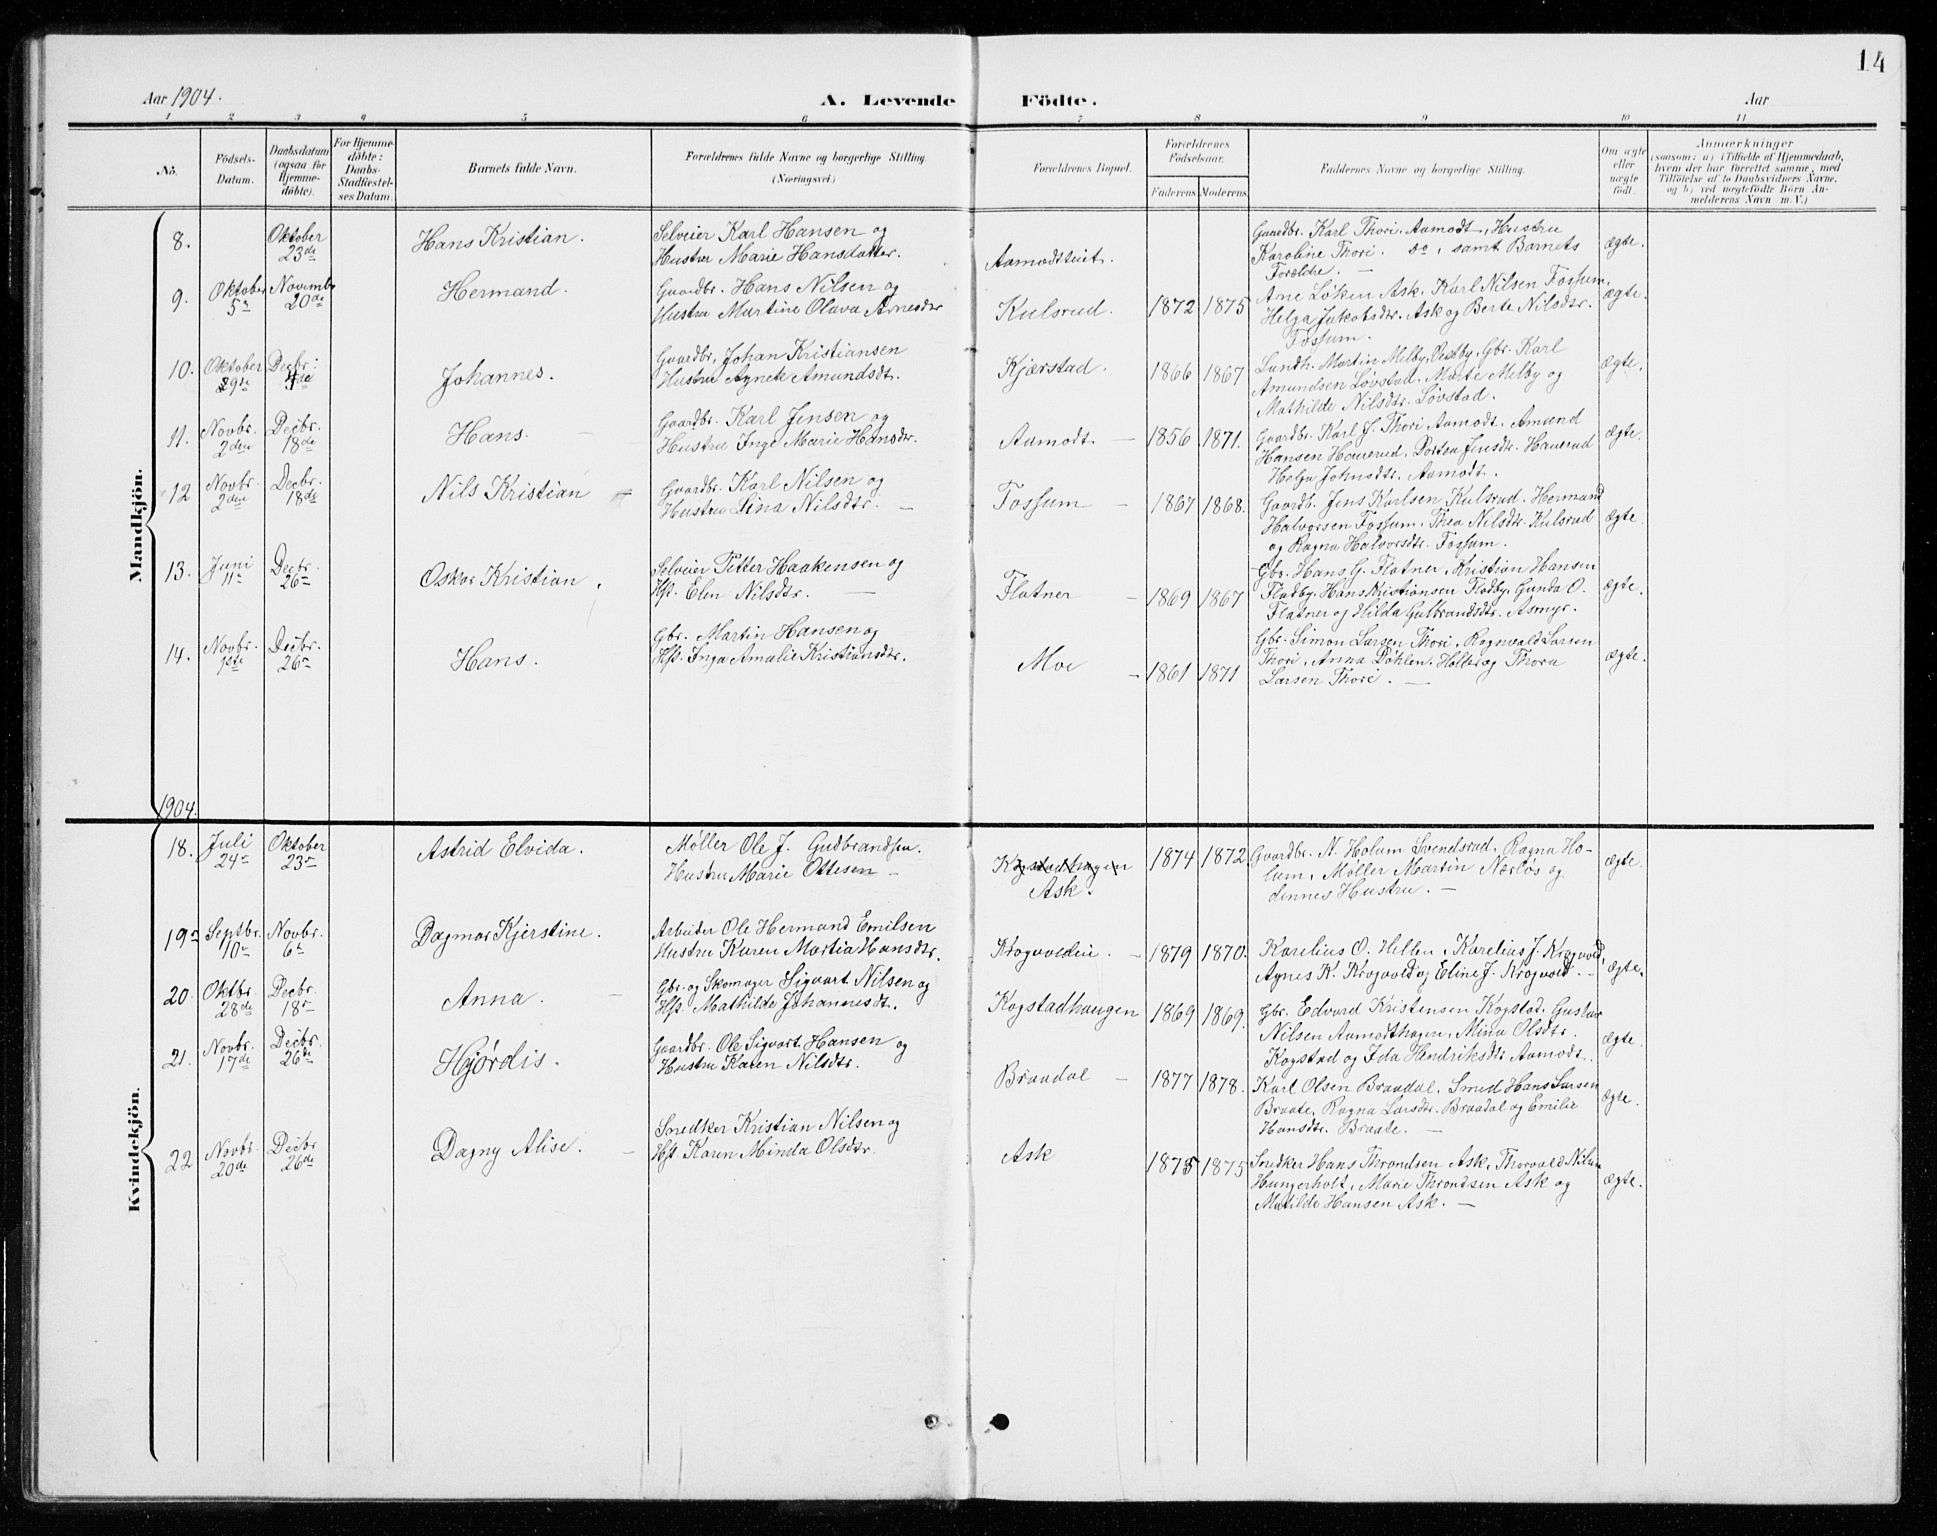 14
Aar 1904.
A. Levende Födte.
Aar
1 2 3 4 5 6 7 8 9 10 11
No.
Födsels-Datum.
Daabsdatum (ogsaa for Hjemmedöbte).
For Hjemmedöbte: Daabs-Stadfestelses Datum.
Barnets fulde Navn.
Forældrenes fulde Navne og borgerlige Stilling (Næringsvei.)
Forældrenes Bopæl.
Forældrenes Födselsaar.
Faderens. Moderens.
Faddernes Navne og borgerlige Stilling.
Om ægte eller uægte født.
Anmærkninger
(saasom: a) i Tilfælde af Hjemmedaab,
hvem der har forrettet samme, med
Tilföielse af to Daabsvidners Navne.
og b) ved uegtefödte Börn An-
melderens Navn m. V.)
Mandkjön.
8.
Oktober
23de
Hans Kristian.
Selveier Karl Hansen og
Hustru Marie Hansdatter.
Aamodteiet.
Gaardbr. Karl Thori, Aamodt, Hustru
Karoline Thori. do, samt Barnets
Forældre. —
ægte.
9.
Oktober
5te
Novembr
20de
Hermand.
Gaardbr. Hans Nilsen og
Hustru Martine Olava Arnesdtr
Kulsrud.
1872 1875
Arne Løken Ask, Karl Nilsen Fossum,
Helga Jakobsdtr. Ask og Berte Nilsdtr.
Fossum.
ægte.
10.
Oktober
29de
Decbr:
4de
Johannes.
Gaardbr, Johan Kristiansen
Hustru Agnete Amundsdt.
Kjærstad.
1866 1867
Landh. Martin Melby, Østby, Gbr. Karl
Amundsen Løvstad, Marte Melby og
Mathilde Nilsdtr. Løvstad.
ægte.
11.
Novbr.
2den
Decbr.
18de
Hans. —
Gaardbr. Karl Jensen og
Hustru Inge Marie Hansdtr.
Aamodt —
1856 1871.
Gaardbr. Karl J. Thori Aamodt, Amund
Hansen Hauerud, Dortea Jensdtr. Hauerud
Helga Johnsdtr. Aamodt.
ægte.
12
Novbr.
2den
Decbr.
18de
Nils Kristian —
Gaardbr. Karl Nilsen og
Hustru Lina Nilsdtr. —
Fossum —
1867 1868.
Gaardb. Jens Karlsen Kulsrud. Hermand
Halvorsen Fossum, Thea Nilsdtr. Kulsrud
og Ragna Halvorsdtr. Fossum.
ægte.
13.
Juni
11te
Decbr.
26de
Oskar Kristian.
Selveier Petter Haakensen og
Hst. Elen Nilsdtr. —
Flatner —
1869 1867
Gbr. Hans G. Flatner, Kristian Hansen
Fladby, Hans Kristiansen Fladby, Gunda O.
Flatner og Hilda Gulbrandsdtr. Asmyr.
ægte.
14.
Novbr.
1ste
Decbr.
26de
Hans.
Gbr. Martin Hansen og
Hst. Inga Amalie Kristiansdtr.
Moe —
1861 1871
Gbr. Simon Larsen Thori, Ragnvald Larsen
Thori, Anna Døhlen, Holter og Thora
Larsen Thori. —
ægte.
1904.
Kvindekjön.
18.
Juli
24de
Oktober
23de
Astrid Elvida.
Møller Ole J. Gudbrandsen.
Hustru Marie Ottesen —
Kogstadhagen
Ask.
1874 1872
Gaardbr. N. Holum Svendsrud, Ragna Ho-
lum, Møller Martin Nærløs og
dennes Hustru. —
ægte.
19de
Septbr.
10de
Novbr.
6te
Dagmar Kjerstine.
Arbeider Ole Hermand Emilsen
Hustru Karen Martia Hansdtr.
Krogvolden. —
1879 1870.
Karelius O. Hellen, Karelius J. Krogvold,
Agnes K. Krogvold og Eline J. Krogvold. —
ægte.
20.
Oktbr.
28de
Decbr.
18de
Anna. —
Gbr. og Skomager Sigvart Nilsen og
Hst. Mathilde Johannesdt.
Kogstadhaugen
1869 1869.
Gbr. Edvard Kristensen Kogstad, Gustav
Nilsen Aamodthagen, Mina Olsdtr.
Kogstad og Ida Hendriksdtr Aamodt.
ægte.
21.
Novbr.
17de
Decbr.
26de
Hjørdis.
Gaardbr. Ole Sigvart Hansen og
Hustru Karen Nilsdtr.
Braadal —
1877 1878.
Karl Olsen Braadal, Smed Hans Larsen
Braate, Ragna Larsdtr. Braadal og Emilie
Hansdtr. Braate. —
ægte.
22
Novbr.
20de
Decbr
26de
Dagny Alise. —
Snedker Kristian Nilsen og
Hst. Karen Minda Olsdtr.
Ask
1875 1875
Snedker Hans Throndsen Ask, Thorvald Nilsen
Hungerholt, Marie Throndsen Ask og
Matilde Hansen Ask. —
ægte.